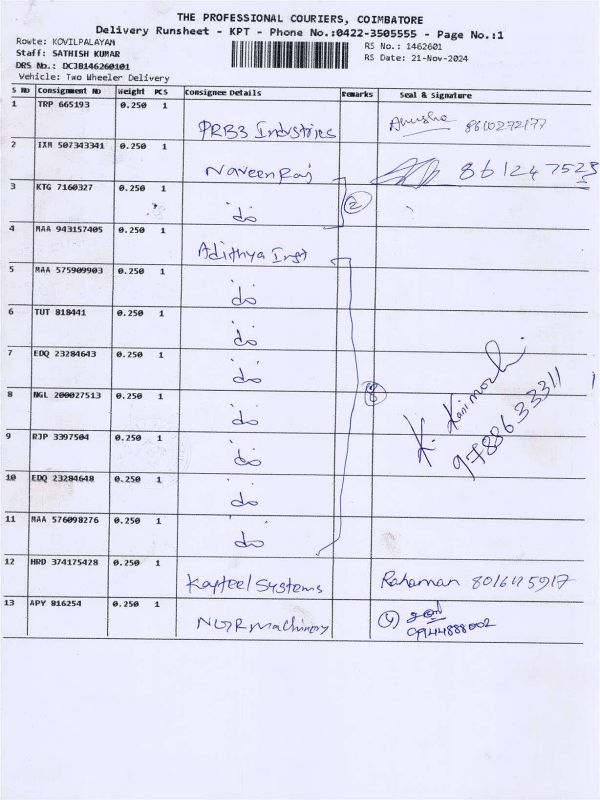 THE PROFESSIONAL COURIERS, COIMBATORE
Delivery Runsheet - KPT - Phone No.:0422-3505555 - Page No.:1
Route: KOVILPALAYAM
Staff: SATHISH KUMAR
DRS No.: DCJB146260101
Vehicle: Two Wheeler Delivery
RS No.: 1462601
RS Date: 21-Nov-2024
S No Consignment No Weight PCS Consignee Details Remarks Seal & Signature
1 TRP 665193 0.250 1 PRB3 Industries Anusha 8610272177
2 IXM 507343341 0.250 1 NaveenRaj 861247523
3 KTG 7160327 0.250 1 do 2
4 MAA 943157405 0.250 1 Adithya Inst
5 MAA 575909903 0.250 1 do
6 TUT 818441 0.250 1 do
7 EDQ 23284643 0.250 1 do
8 NGL 200027513 0.250 1 do 8 K. Kanimozhi
9 RJP 3397504 0.250 1 do 9788633311
10 EDQ 23284648 0.250 1 do
11 MAA 576098276 0.250 1 do
12 HRD 374175428 0.250 1 Kapteel Systems Rahaman
13 APY 816254 0.250 1 NGR Machinery
09944888002